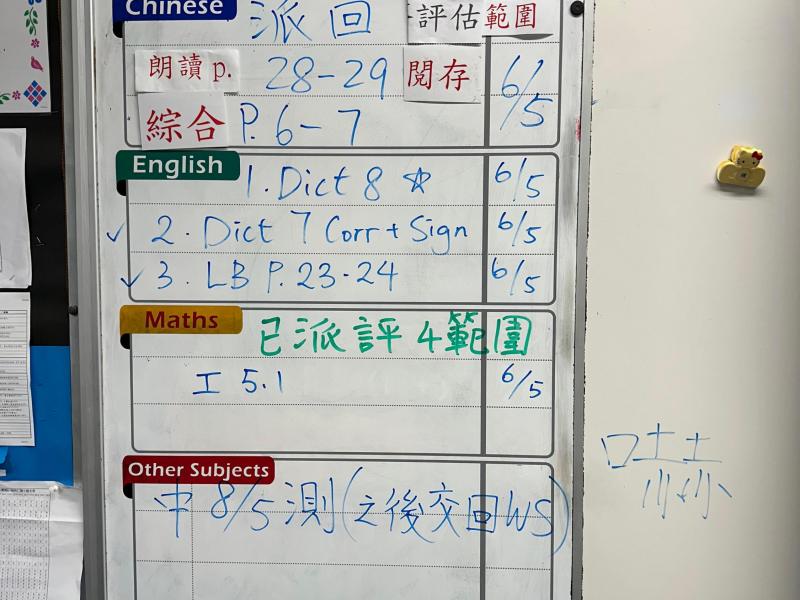 Chinese
派回 評估範圍
朗讀 p. 28-29 閱存 6/5
綜合 P. 6-7
English
1. Dict 8 ☆ 6/5
✓ 2. Dict 7 Corr + Sign 6/5
✓ 3. LB P. 23-24 6/5
Maths
已派評 4 範圍
工 5.1 6/5
Other Subjects
中 8/5 測 (之後交回 WS)